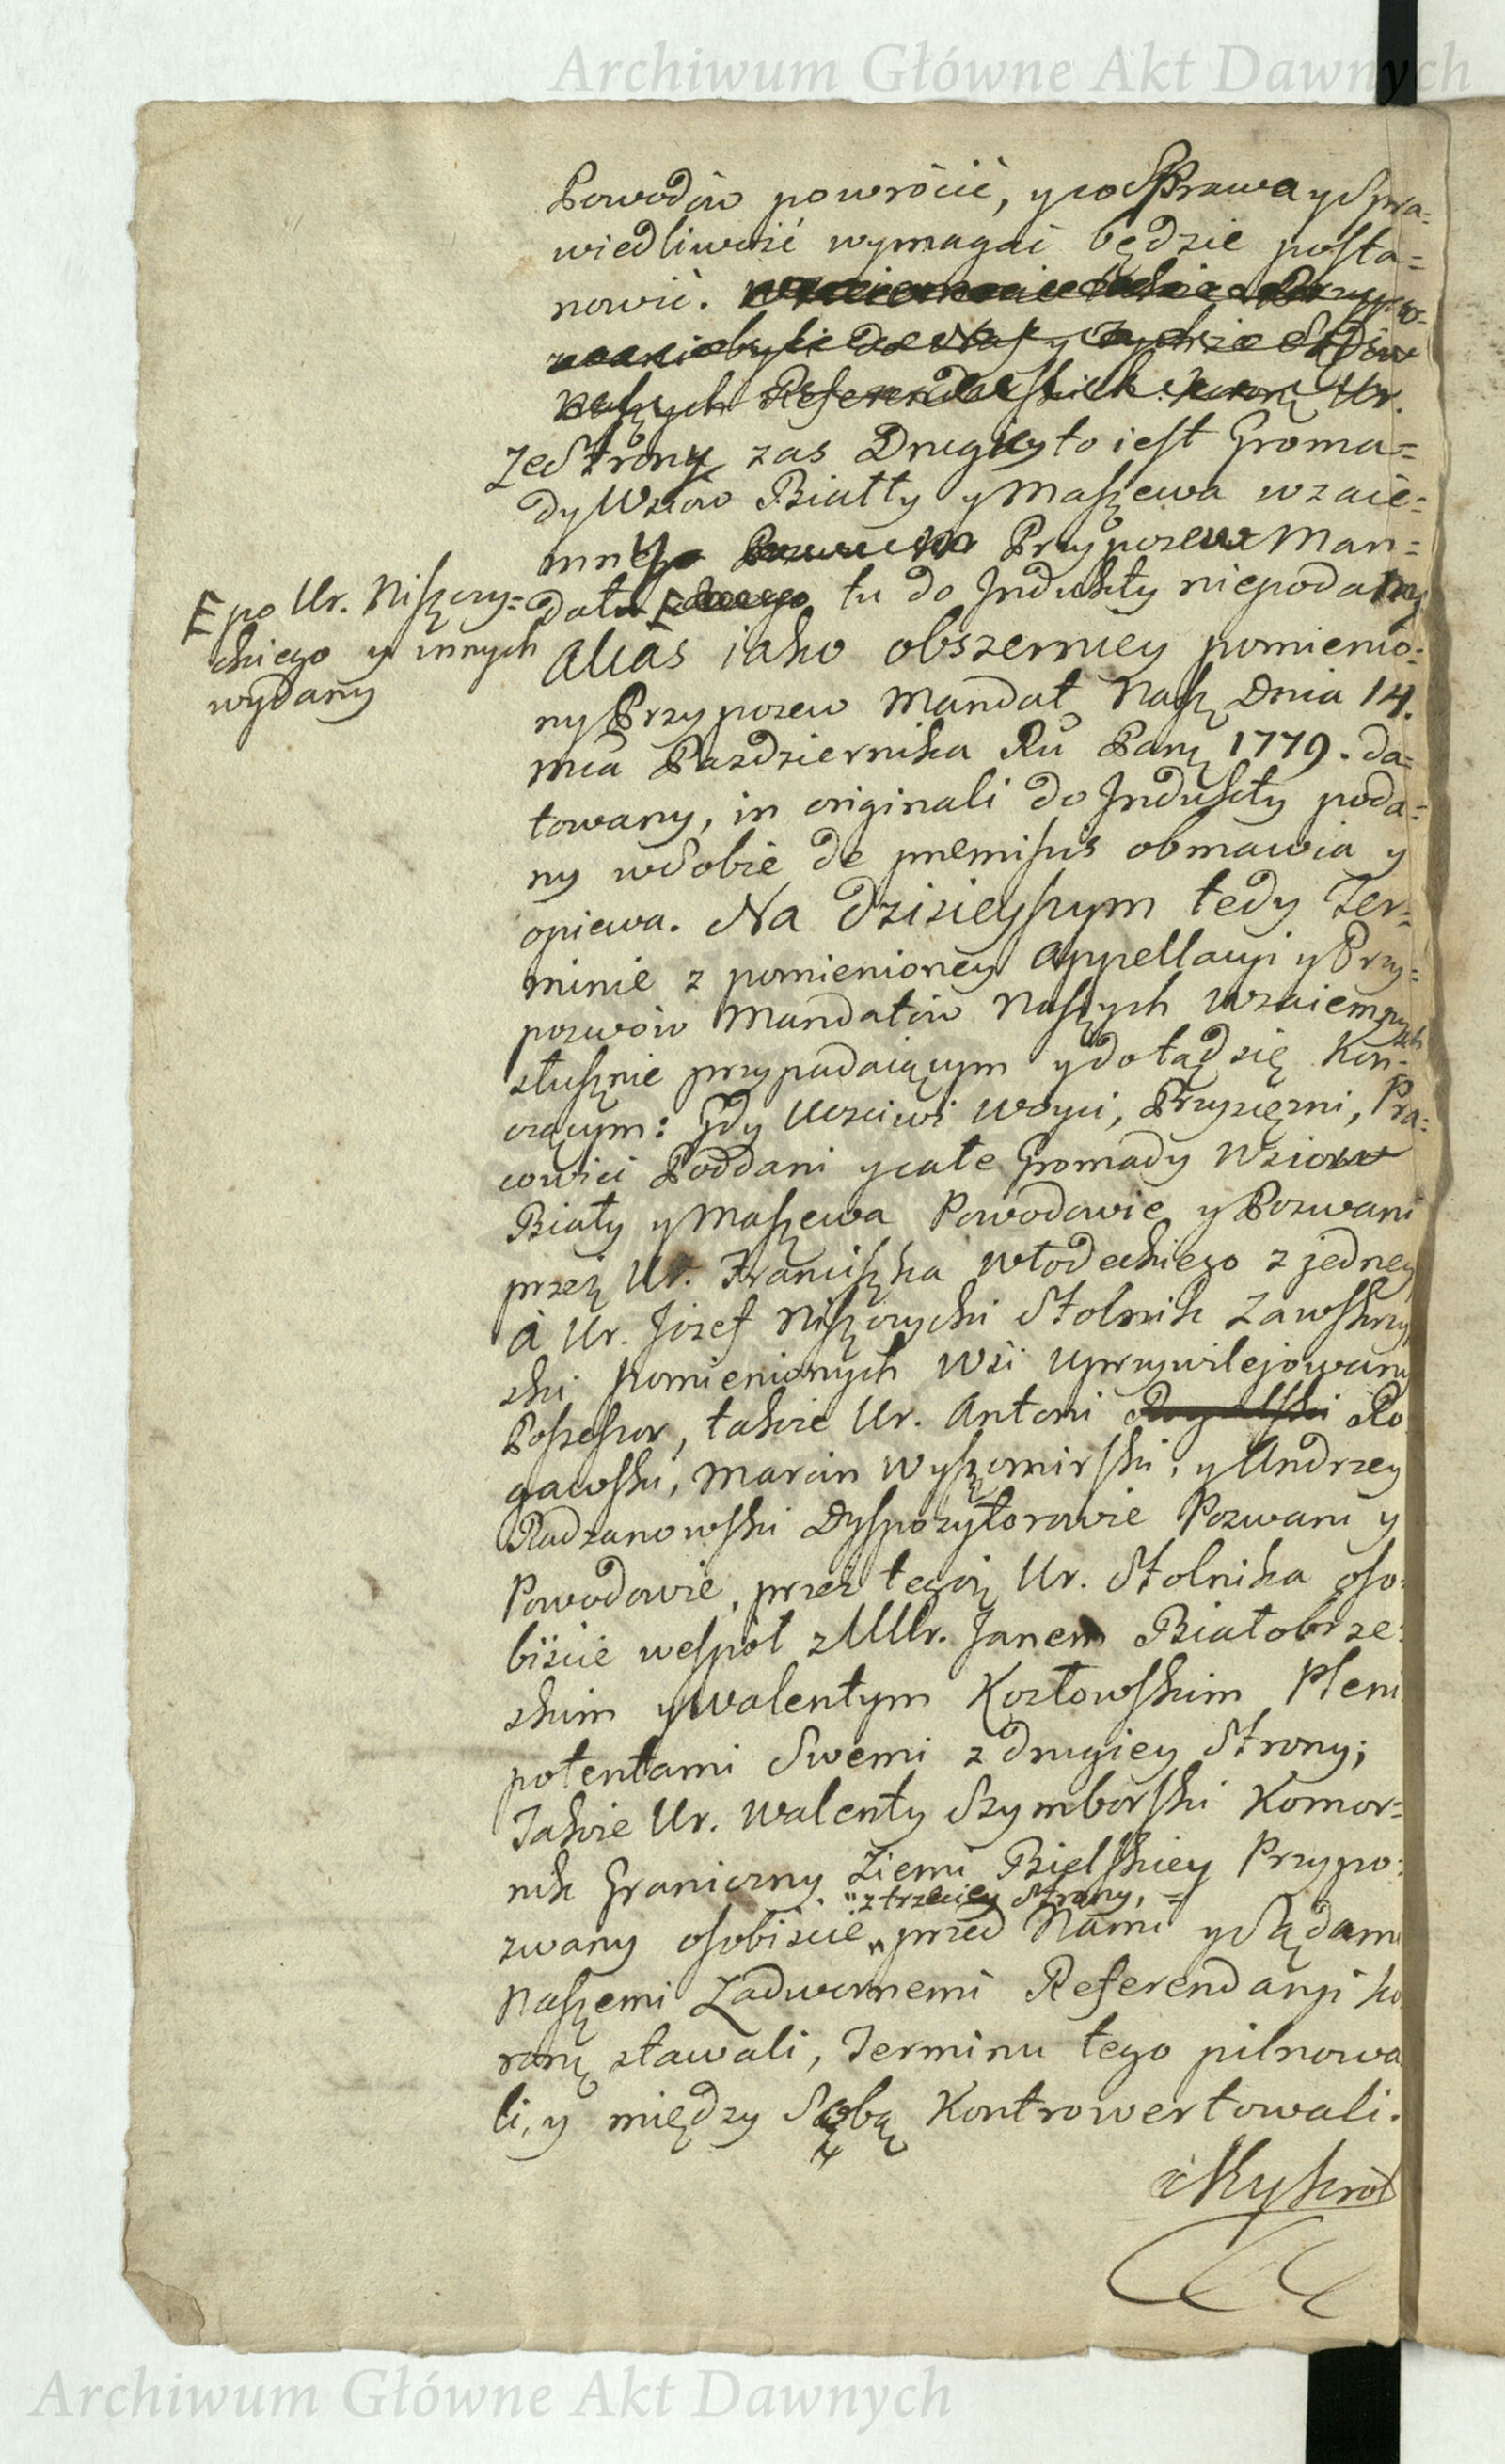 Archiwum Główne Akt Dawnych
Powodów powrócić, y co Prawa y Spra=
wiedliwość wymagać będzie posta=
nowić.
naszych Referendarskich Koronų Ur.
ze Strony zas Drugiey to iest Groma=
dy Wsiów Biały y Maszewa wzaie=
mny Przypozew Man=
F po Ur. Niszczy=
ckiego y innych
wydany
datu F tu do Indukty niepodany
Alias iako obszerniey pomienio=
ny Przypozew Mandat Nasz Dnia 14.
mca Pazdziernika Ru Panų 1779. da=
towany, in originali do Indukty poda=
ny w Sobie de premissis obmawia y
opiewa. Na dzisieyszym tedy Ter=
minie z pomienioney appellacyi y Przy=
pozwów Mandatów Naszych wzaiemnych
słusznie przypadaiącym y dotąd się Kon=
czącym: Gdy Uczciwi Woyci, Przysięzni, Pra=
cowici Poddani y całe Gromady Wsiow
Biały y Maszewa Powodowie y Pozwani
przez Ur. Franciszka Włodeckiego z jedney
à Ur. Jozef Niszczycki Stolnik Zawskrzy
ski pomienionych Wsi uprzywilejowany
Possessor, takze Ur. Antoni Rogalski Ro
gawski, Marcin Wyszomirski, y Andrzey
Radzanowski Dyspozytorowie Pozwani y
Powodowie, przez tegoz Ur. Stolnika oso=
biscie wespół z UUr. Janem Białobrze=
skim y Walentym Kozłowskim Pleni
potentami Swemi z drugiey Strony;
Takze Ur. Walenty Szymborski Komor=
nik Graniczny Ziemi Bielskiey Przypo=
z trzeciey Strony,
zwany osobiscie przed Nami y Sądami
Naszemi Zadwornemi Referendaryi ko
ronų stawali, Terminu tego pilnowa
li, y między Sobą Kontrowertowali.
My Krol
Archiwum Główne Akt Dawnych